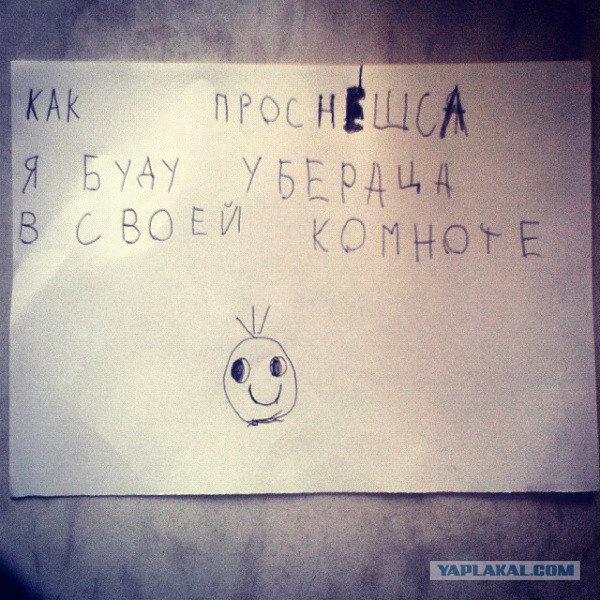 КАК ПРОСНЕШСА
Я БУДУ УБЕРАЦА
В СВОЕЙ КОМНОТЕ
YAPLAKAL.COM